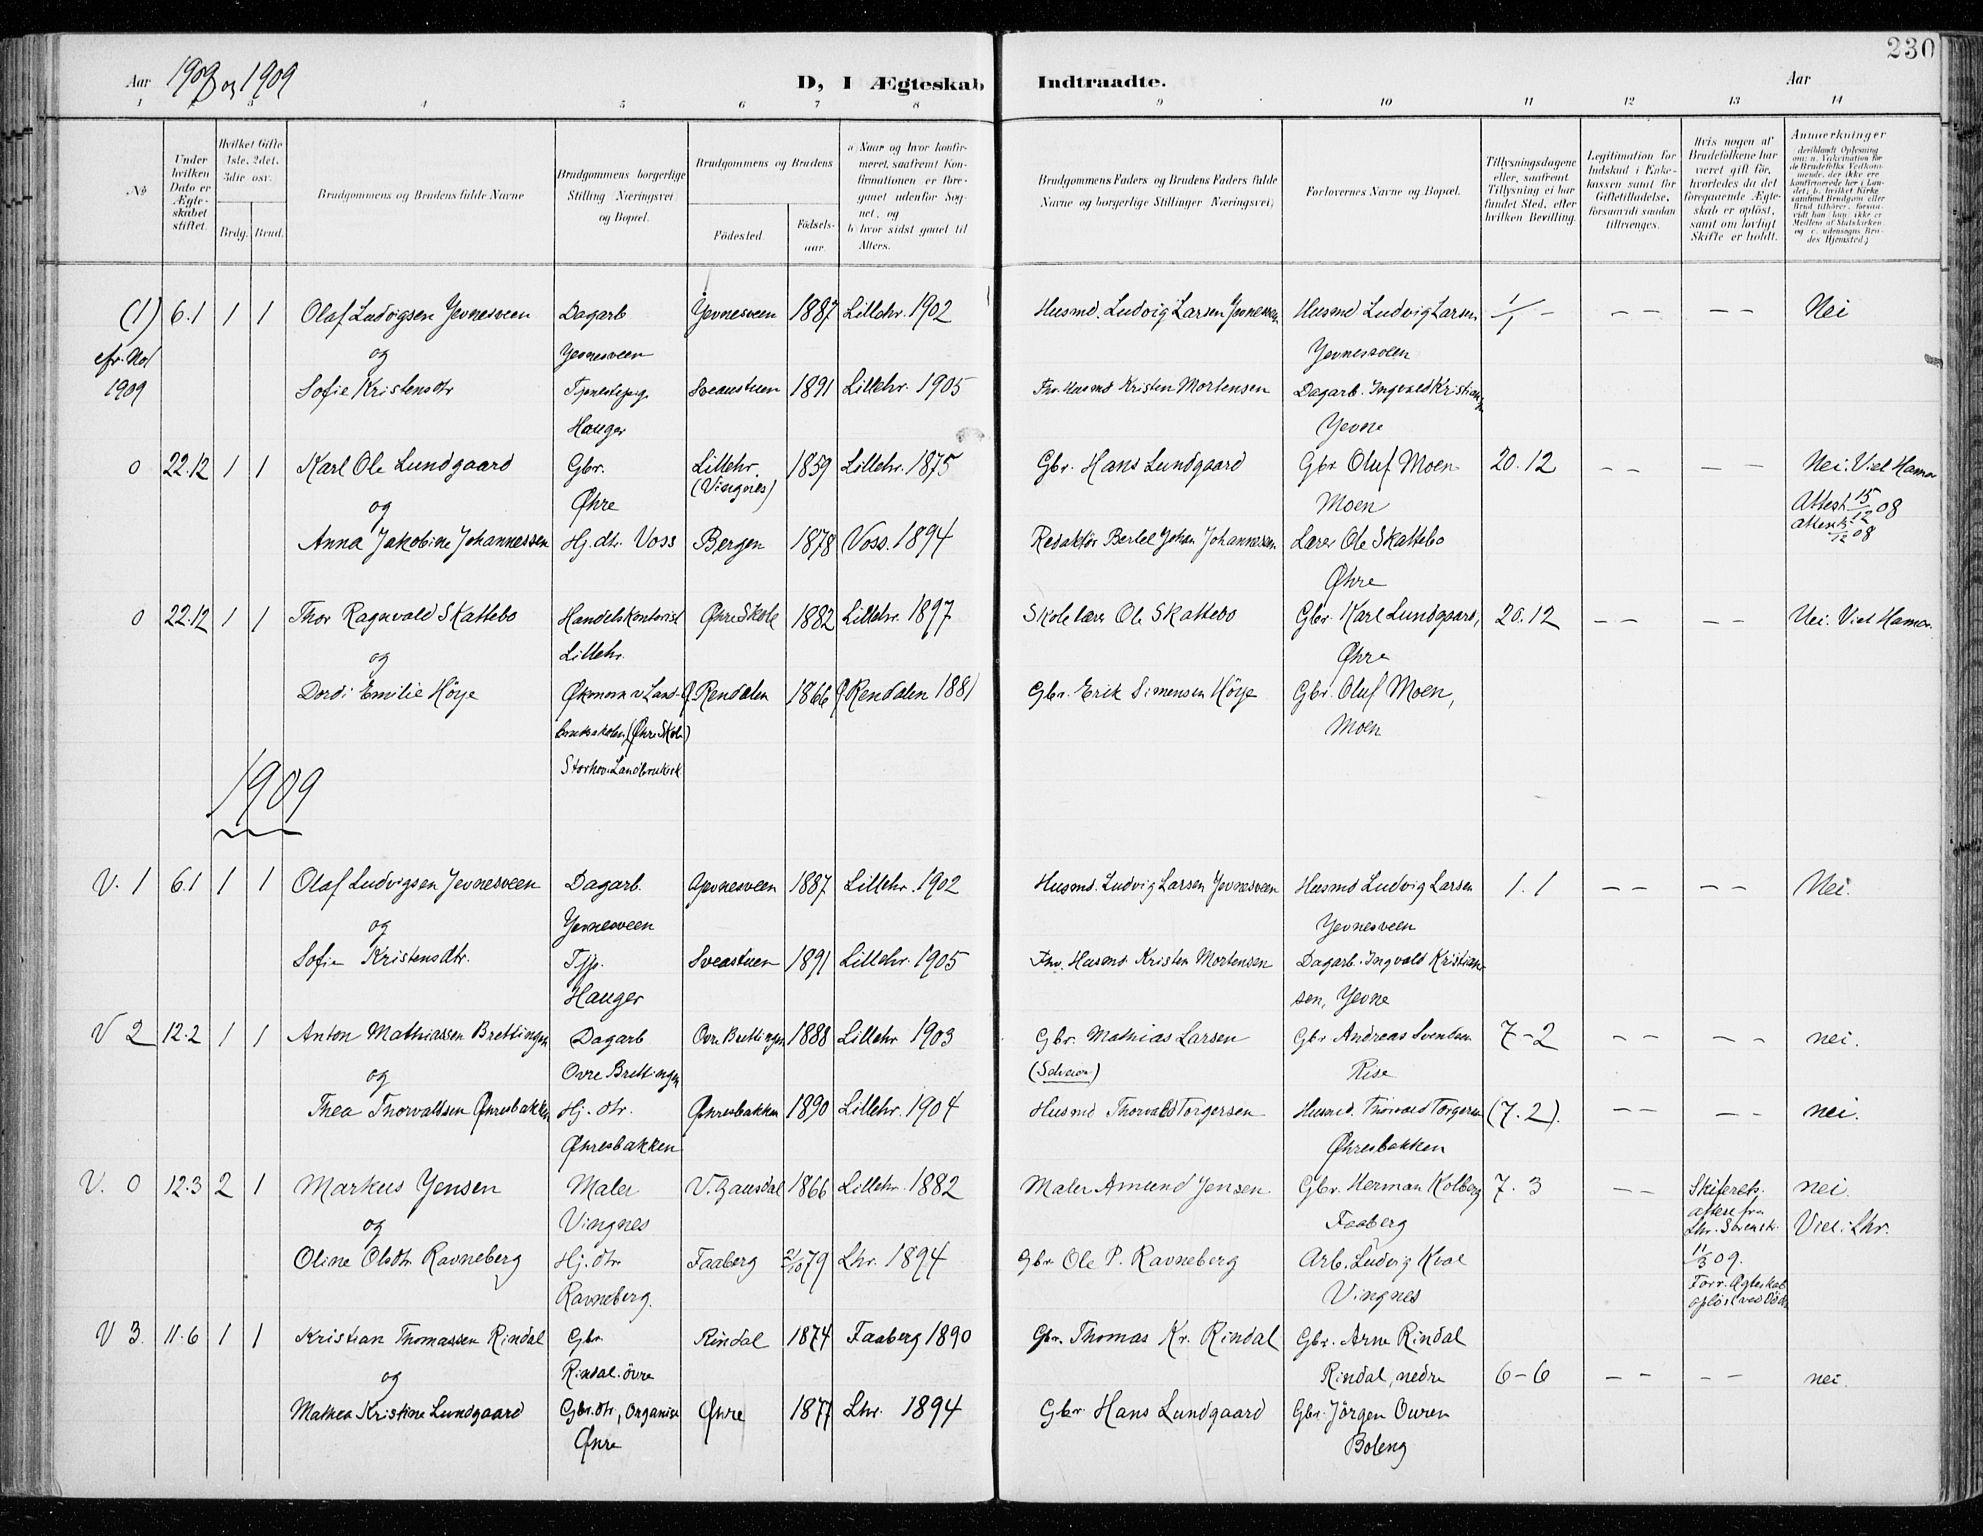 230
Aar 1908 og 1909 D, I Ægteskab Indtraadte. Aar
1 3 4 5 6 7 8 9 10 11 12 13 14
No
Under hvilken Dato er Ægteskabet stiftet.
Hvilket Gifte 1ste, 2det, 3die osv.
Brdg. Brud.
Brudgommens og Brudens fulde Navne
Brudgommens borgerlige Stilling Næringsvei og Bopæl.
Brudgommens og Brudens
Födested.
Födsels-aar.
a Naar og hvor konfirmeret, saafremt Konfirmationen er foregaaet udenfor Sognet, og
b hvor sidst gaaet til Alters.
Brudgommens Faders og Brudens Faders fulde Navne og borgerlige Stillinger Næringsvei;
Forlovernes Navne og Bopæl.
Tillysningsdagene eller, saafremt Tillysning ei har fundet Sted, efter hvilken Bevilling.
Legitimation for Indskud i Enkekassen samt for Giftetilladelse, forsaavidt saadan tiltrænges.
Hvis nogen af Brudefolkene har været gift før, hvorledes da det foregaaende Ægteskab er opløst, samt om lovligt Skifte er holdt.
Anmerkninger
(1) 6.1 1 1 Olaf Ludvigsen Jevnesveen Dagarb Jevnesveen 1887 Lillehr. 1902 Husmd. Ludvig Larsen Jevnesveen Husmd Ludvig Larsen 1/1 - – – – – Nei
cfr. No 1 og Jevnesveen Jevnesveen
1909 Sofie Kristensdtr Sveastuen 1891 Lillehr. 1905 Fhv. Husmd Kristen Mortensen Dagarb. Ingvald Kristiansen
Hauger Jevne
0 22.12 1 1 Karl Ole Lundgaard Gbr. Lillehr. 1859 Lillehr. 1875 Gbr. Hans Lundgaard Gbr Oluf Moen 20.12 – – – – Nei. Viet Hamar
(Vingnes)
og Øhre Moen Attest 15/12 08
Anna Jakobine Johannessen Hj. dtr. Voss Bergen 1878 Voss. 1894 Redaktör Bertel Johan Johannessen Lærer Ole Skattebo
Øhre
0 22.12 1 1 Thor Ragnvald Skattebo Handelskontorist Øhre Skole 1882 Lillehr. 1897 Skolelærer Ole Skattebo Gbr. Karl Lundgaard, 20.12 – – – – Nei. Viet Hamar.
og Lillehr. Øhre
Dordi Emilie Höye Økonom v. Land- Rendalen 1866 Rendalen 1881 Gbr. Erik Simensen Höye Gbr. Oluf Moen,
bruksskolen (Øhre Skole) Moen
Storhove Landbruksk
1909
V. 1 6.1 1 1 Olaf Ludvigsen Jevnesveen Dagarb. Jevnesveen 1887 Lillehr. 1902 Husmd. Ludvig Larsen Jevnesveen Husmd Ludvig Larsen 1.1 – – – – Nei.
og Jevnesveen Jevnesveen
Sofie Kristensdtr. Tjp. Sveastuen 1891 Lillehr. 1905 Fhv. Husmd Kristen Mortensen Dagarb. Ingvald Kristian-
Hauger sen, Jevne
V 2 12.2 1 1 Anton Mathiassen Brettingen Dagarb Ovre Brettingen 1888 Lillehr 1903 Gbr. Mathias Larsen Gbr Andreas Svendsen 7-2 – – – – nei.
og Ovre Brettingen Rise
Thea Thorvaldsen Øhresbakken Hj. dtr. Øhresbakken 1890 Lillehr. 1904 Husmd Thorvald Torgersen Husmd. Thorvald Torgersen (7.2). – – – – nei.
Øhresbakken Øhresbakken
V. 0 12.3 2 1 Markus Jensen Maler V. Gausdal 1866 Lillehr. 1882 Maler Amund Jensen Gbr. Herman Kolberg 7.3 – – Skifterets- nei.
og Vingnes Faaberg attest fra Lhr. Viet i Lhr.
Oline Olsdtr Ravneberg Hj. dtr Faaberg 2/10 79 Lhr. 1894 Gbr Ole P. Ravneberg Arb. Ludvig Kroe 11/3 09.
Ravneberg. Vingnes Forr. Ægteskab opløst ved Död
V 3. 11.6 1 1 Kristian Thomassen Rindal Gbr Rindal 1874 Faaberg 1890 Gbr. Thomas Kr. Rindal Gbr. Arne Rindal
og Rindal. övre Rindal, nedre 6-6 – – – – nei.
Mathea Kristine Lundgaard Gbr. dtr, Organist Øhre 1877 Lhr. 1894 Gbr Hans Lundgaard Gbr. Jörgen Ouren
Øhre Boleng